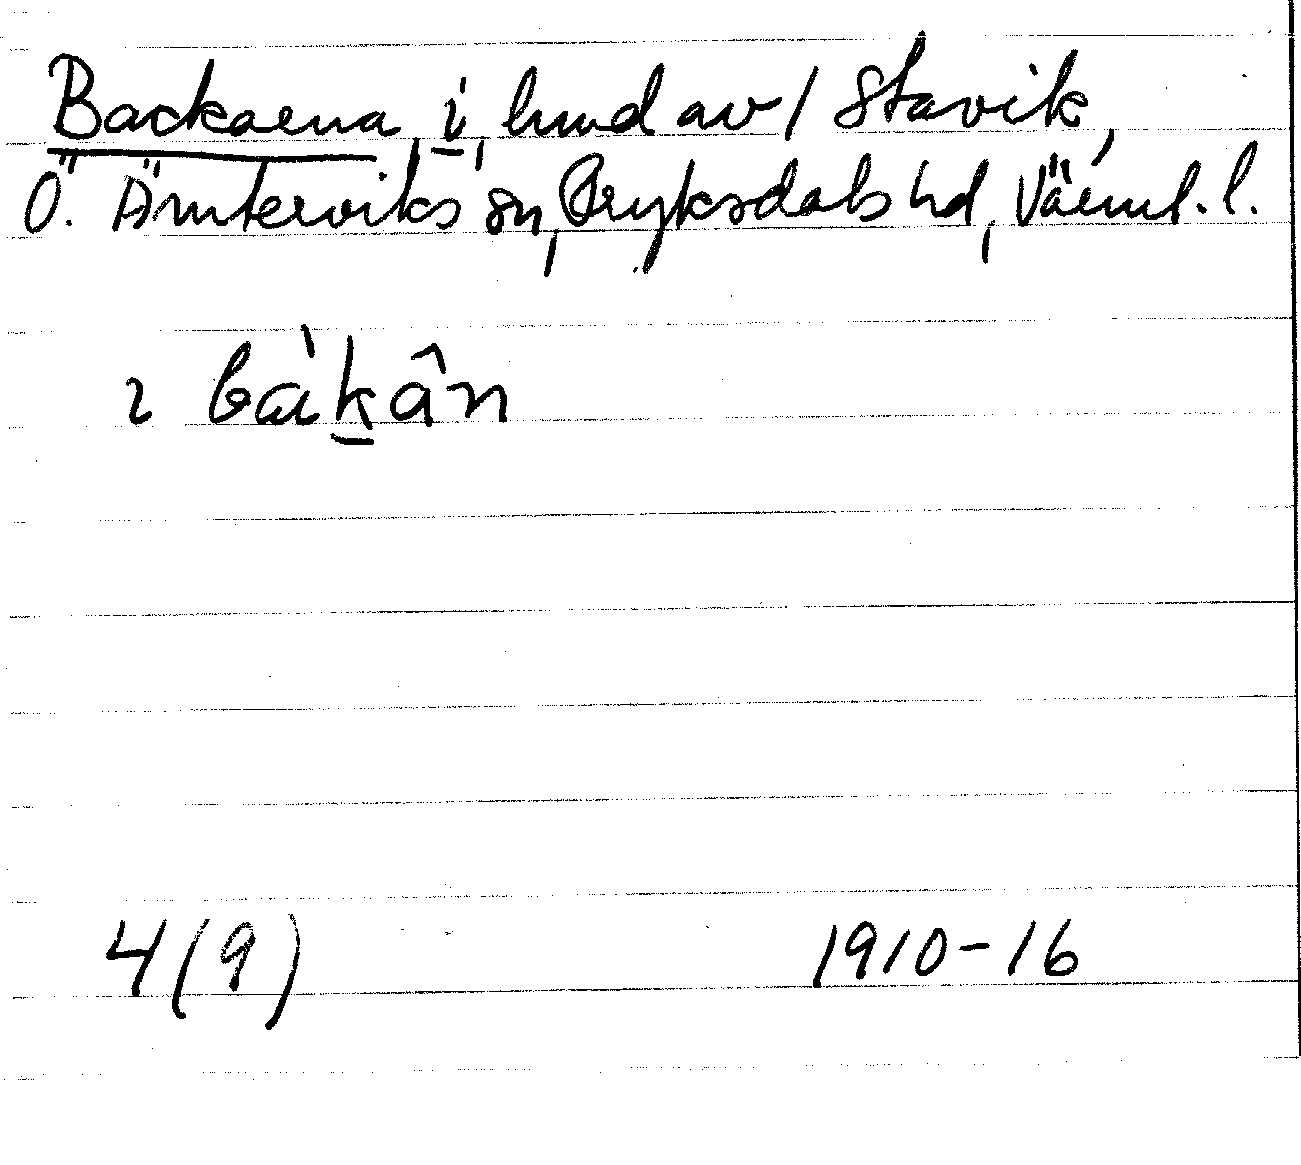 Backarna, i, hmd av 1 Stavik,
Ö. Ämterviks sn, Fryksdals hd, Värml. l.
ɩ bàk̲ân
4(9) 1910-16